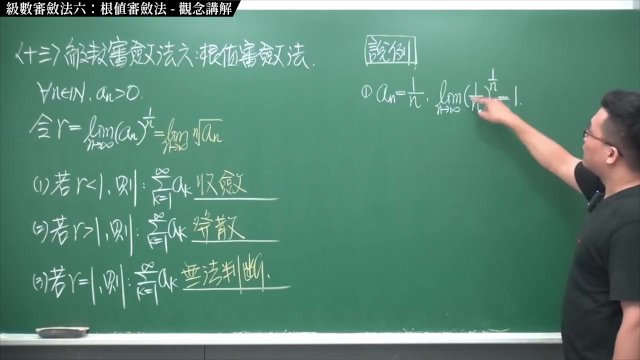 級數審斂法六：根值審斂法 - 觀念講解
<十三>級數審斂法六:根值審斂法.
∀n∈N, aₙ>0.
令 r = lim_{n→∞} (aₙ)^{1/n} = lim_{n→∞} ⁿ√aₙ
(1) 若 r<1, 則: ∑_{k=1}^{∞} aₖ 收斂
(2) 若 r>1, 則: ∑_{k=1}^{∞} aₖ 發散
(3) 若 r=1, 則: ∑_{k=1}^{∞} aₖ 無法判斷.
說例
① aₙ = 1/n. lim_{n→∞} (1/n)^{1/n} = 1.